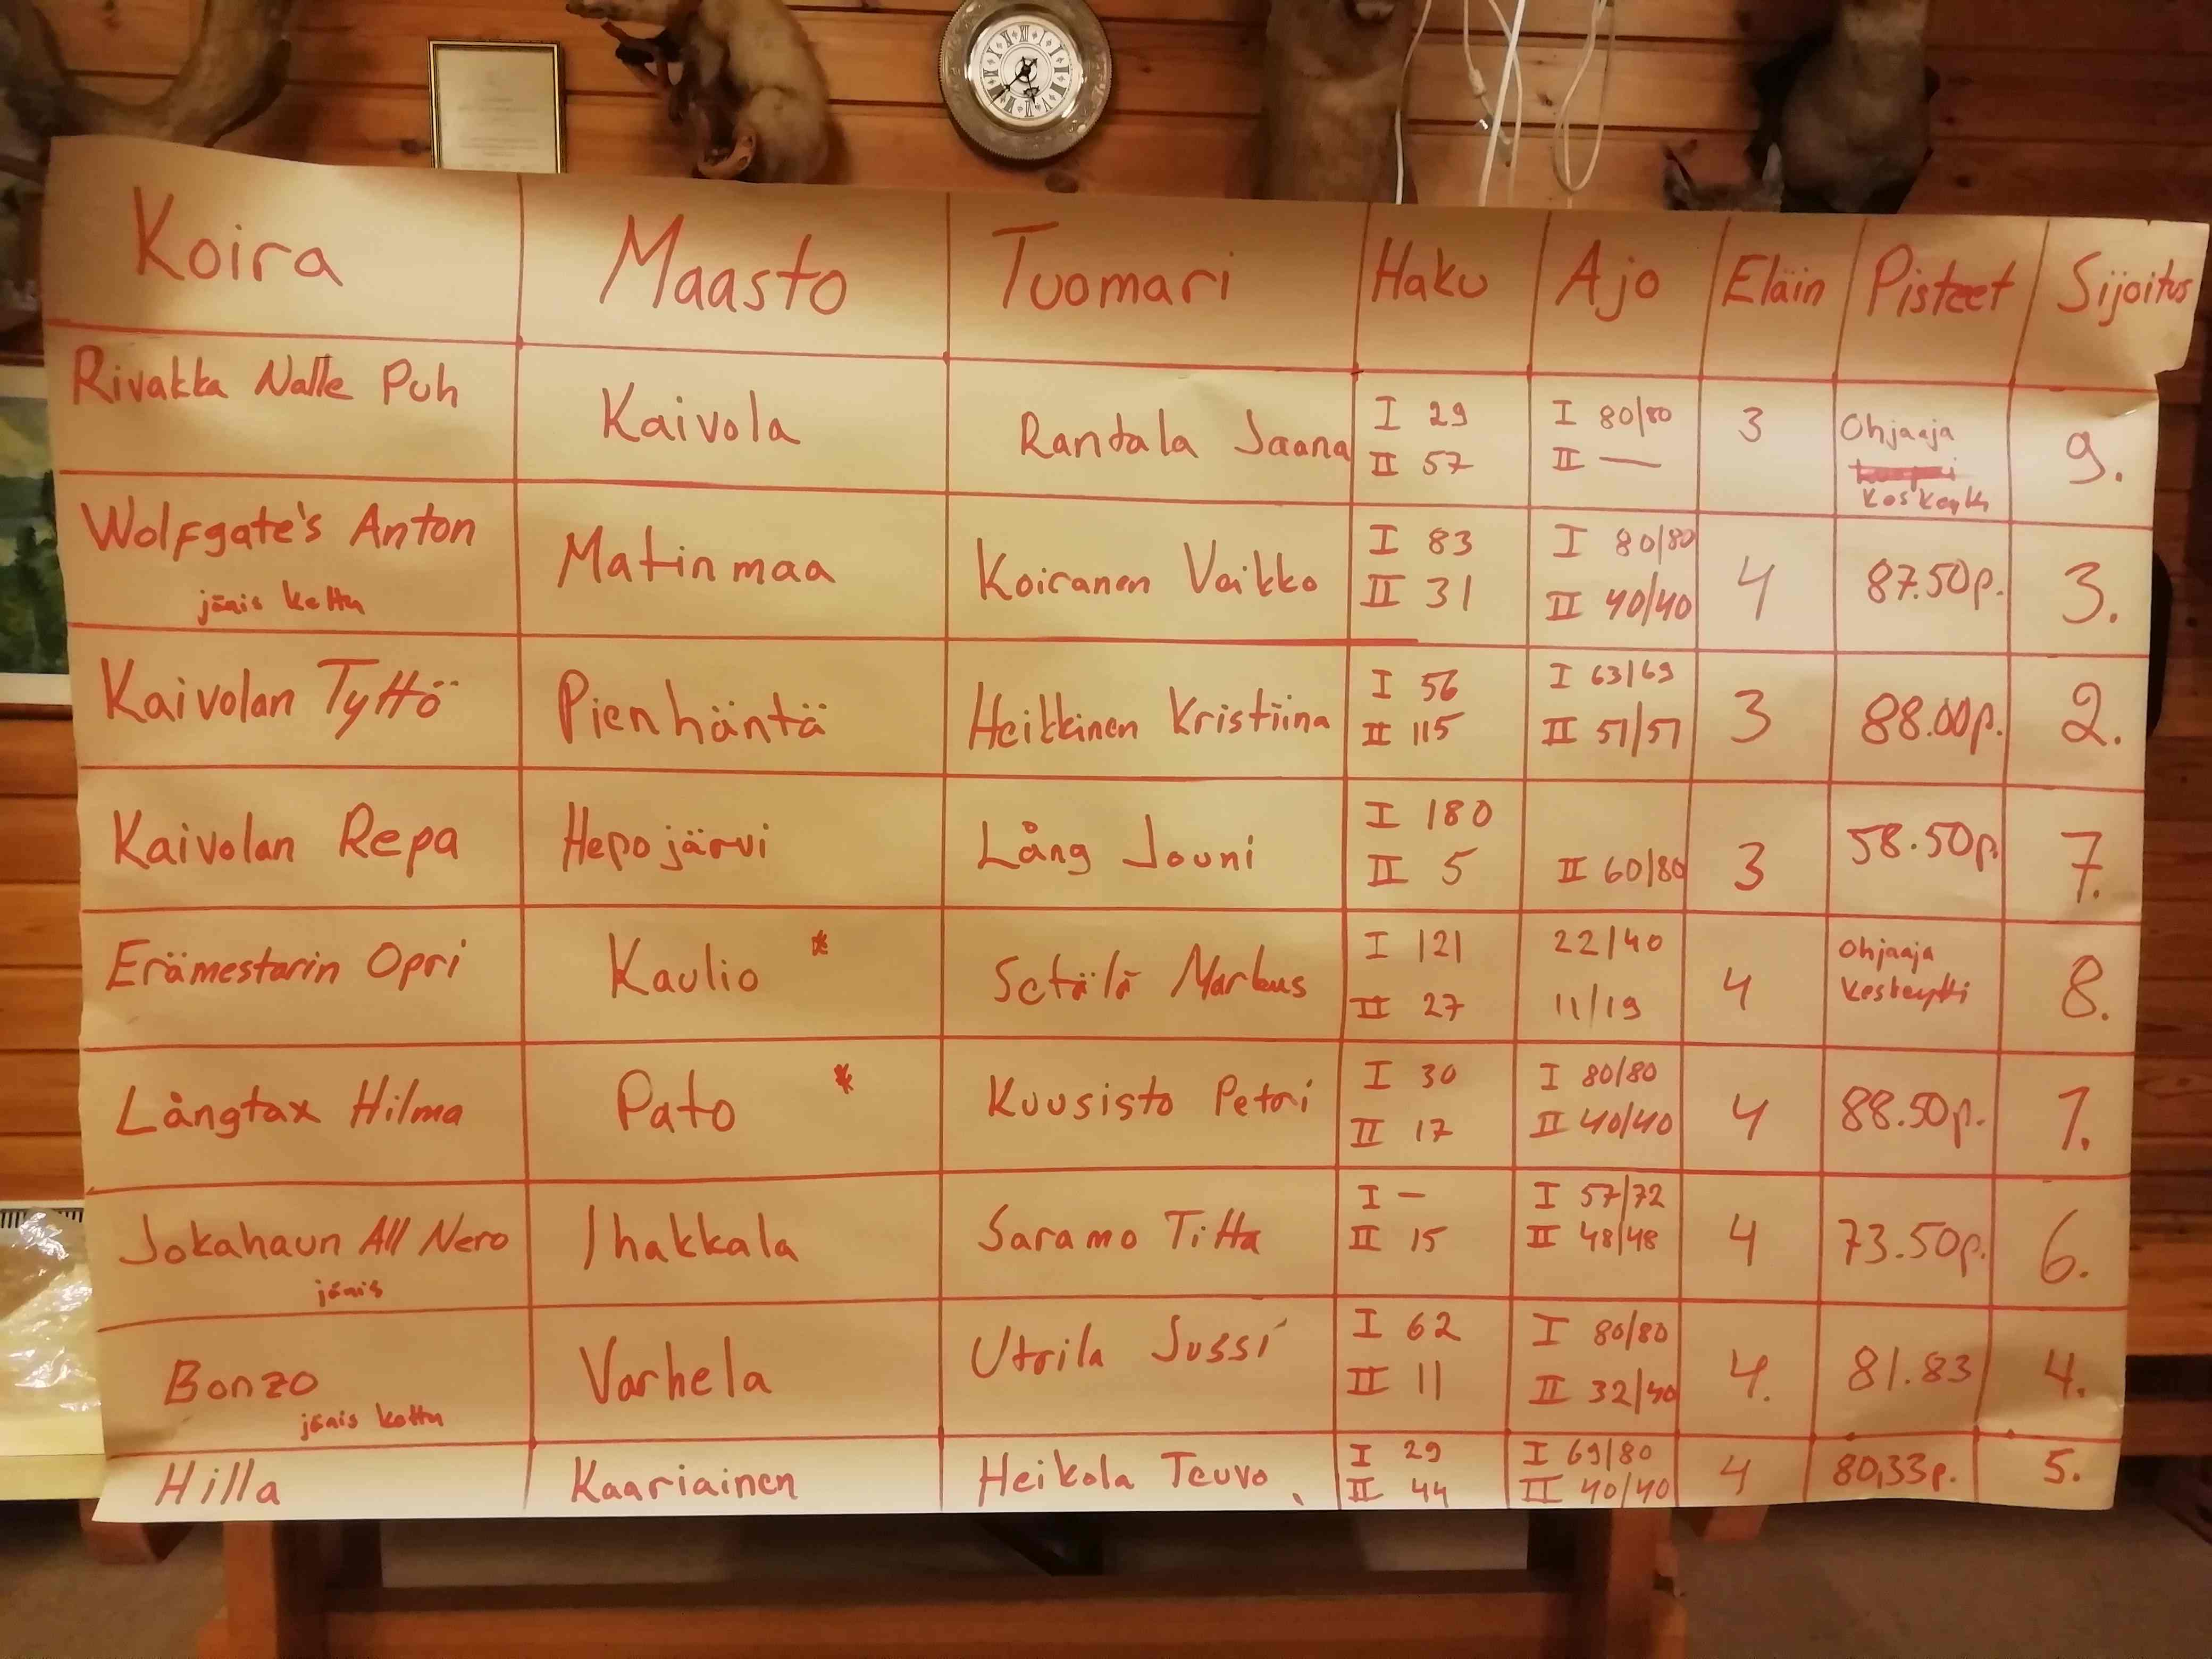 Koira Maasto Tuomari Haku Ajo Eläin Pisteet Sijoitus
Rivakka Nalle Puh Kaivola Rantala Jaana I 29 I 80/80 3 Ohjaaja 9.
II 57 II —
Keskeytti
Wolfgate's Anton Matinmaa Koiranen Veikko I 83 I 80/80 4 87.50p. 3.
jänis kettu II 31 II 40/40
Kaivolan Tyttö Pienhäntä Heikkinen Kristiina I 56 I 63/69 3 88.00p. 2.
II 115 II 51/51
Kaivolan Repa Hepojärvi Lång Jouni I 180 3 58.50p. 7.
II 5 II 60/80
Erämestarin Opri Kaulio * Setälä Markus I 121 22/40 4 Ohjaaja 8.
II 27 11/19 Keskeytti
Långtax Hilma Pato * Kuusisto Petri I 30 I 80/80 4 88.50p. 1.
II 17 II 40/40
Jokahaun All Nero Ihakkala Saramo Titta I — I 57/72 4 73.50p. 6.
jänis II 15 II 48/48
Bonzo Varhela Utrila Jussi I 62 I 80/80 4. 81.83 4.
jänis kettu II 11 II 32/40
Hilla Kaariainen Heikola Teuvo I 29 I 69/80 4 80,33p. 5.
II 44 II 40/40